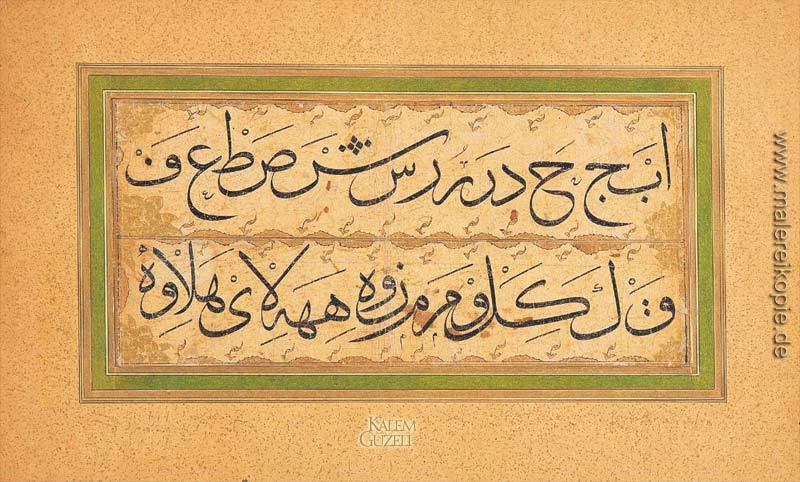 ا ب ج ح د ر ر ر س ش ص ط ع ف
ق ك كل و م م م ن و ه هه لا ى بهلاوه
KALEM
GÜZELİ
www.malereikopie.de